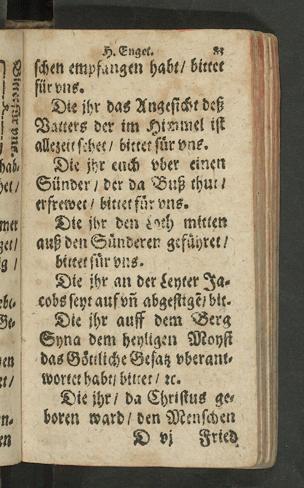 H. Engel. 83
schen empfangen habt / bittet
für vns.
Die jhr das Angesicht deß
Vatters der im Himmel ist
allezeit sehet / bittet für vns.
Die jhr euch vber einen
Sünder / der da Buß thut /
erfrewet / bittet für vns.
Die jhr den Loth mitten
auß den Sünderen geführet /
bittet für vns.
Die jhr an der Leyter Ja-
cobs seyt auf vñ abgestigẽ / bit.
Die jhr auff dem Berg
Syna dem heyligen Moysi
das Göttliche Gesatz vberant-
wortet habt / bittet / ꝛc.
Die jhr / da Christus ge-
boren ward / den Menschen
D vj Fried